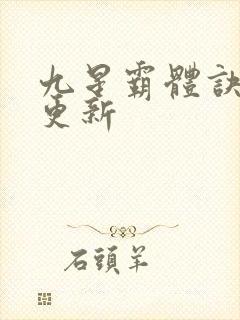 九星霸體訣
更新
石頭羊